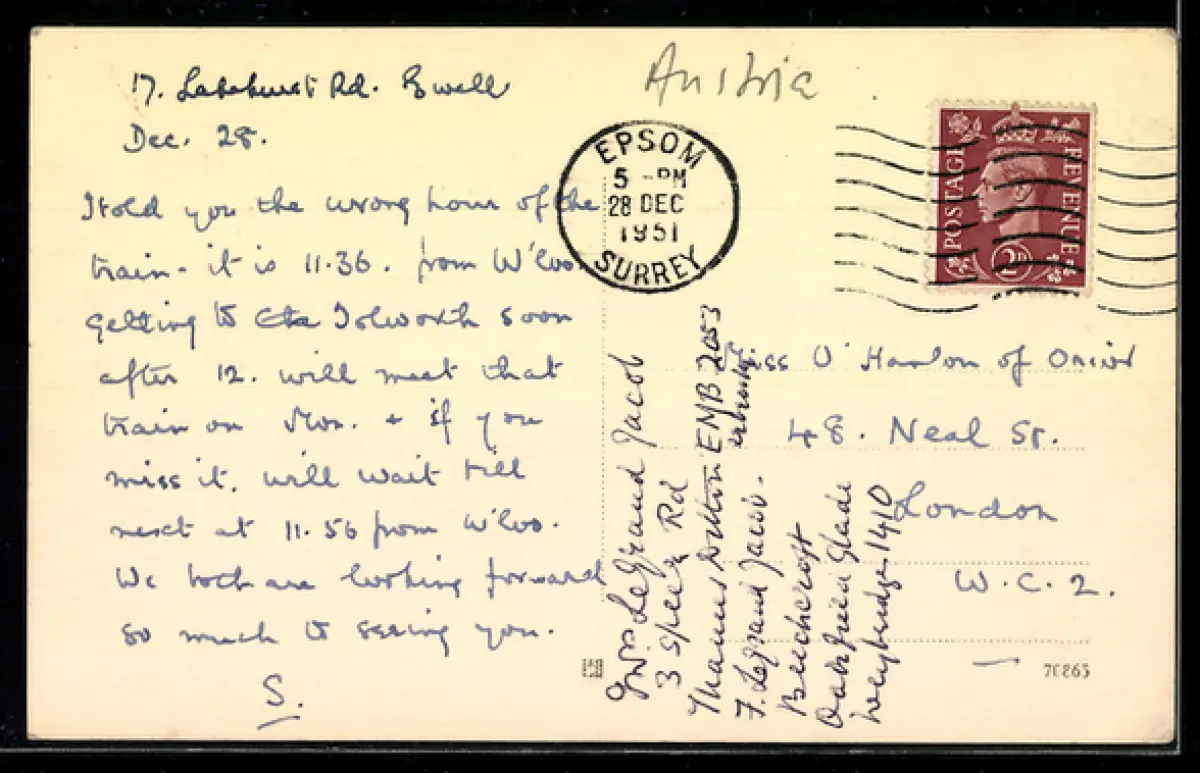 17. Lakehurst Rd. Ewell
Dec. 28.
I told you the wrong hour of the
train - it is 11.36. from W'loo.
getting to Tolworth soon
after 12. will meet that
train on Mon. + if you
miss it, will wait till
next at 11.56 from W'loo.
We both are looking forward
so much to seeing you.
S.
Austria
EPSOM
5 - PM
28 DEC
1951
SURREY
POSTAGE
REVENUE
2D
Miss O' Hanlon of
48. Neal St.
London
W.C.2.
Mrs LeGrand Jacob
3 Speer Rd
Thames Ditton EMB 2053
F. Legrand Jacob -
Beechcroft
Oakfield Glade
Weybridge 1410
70865